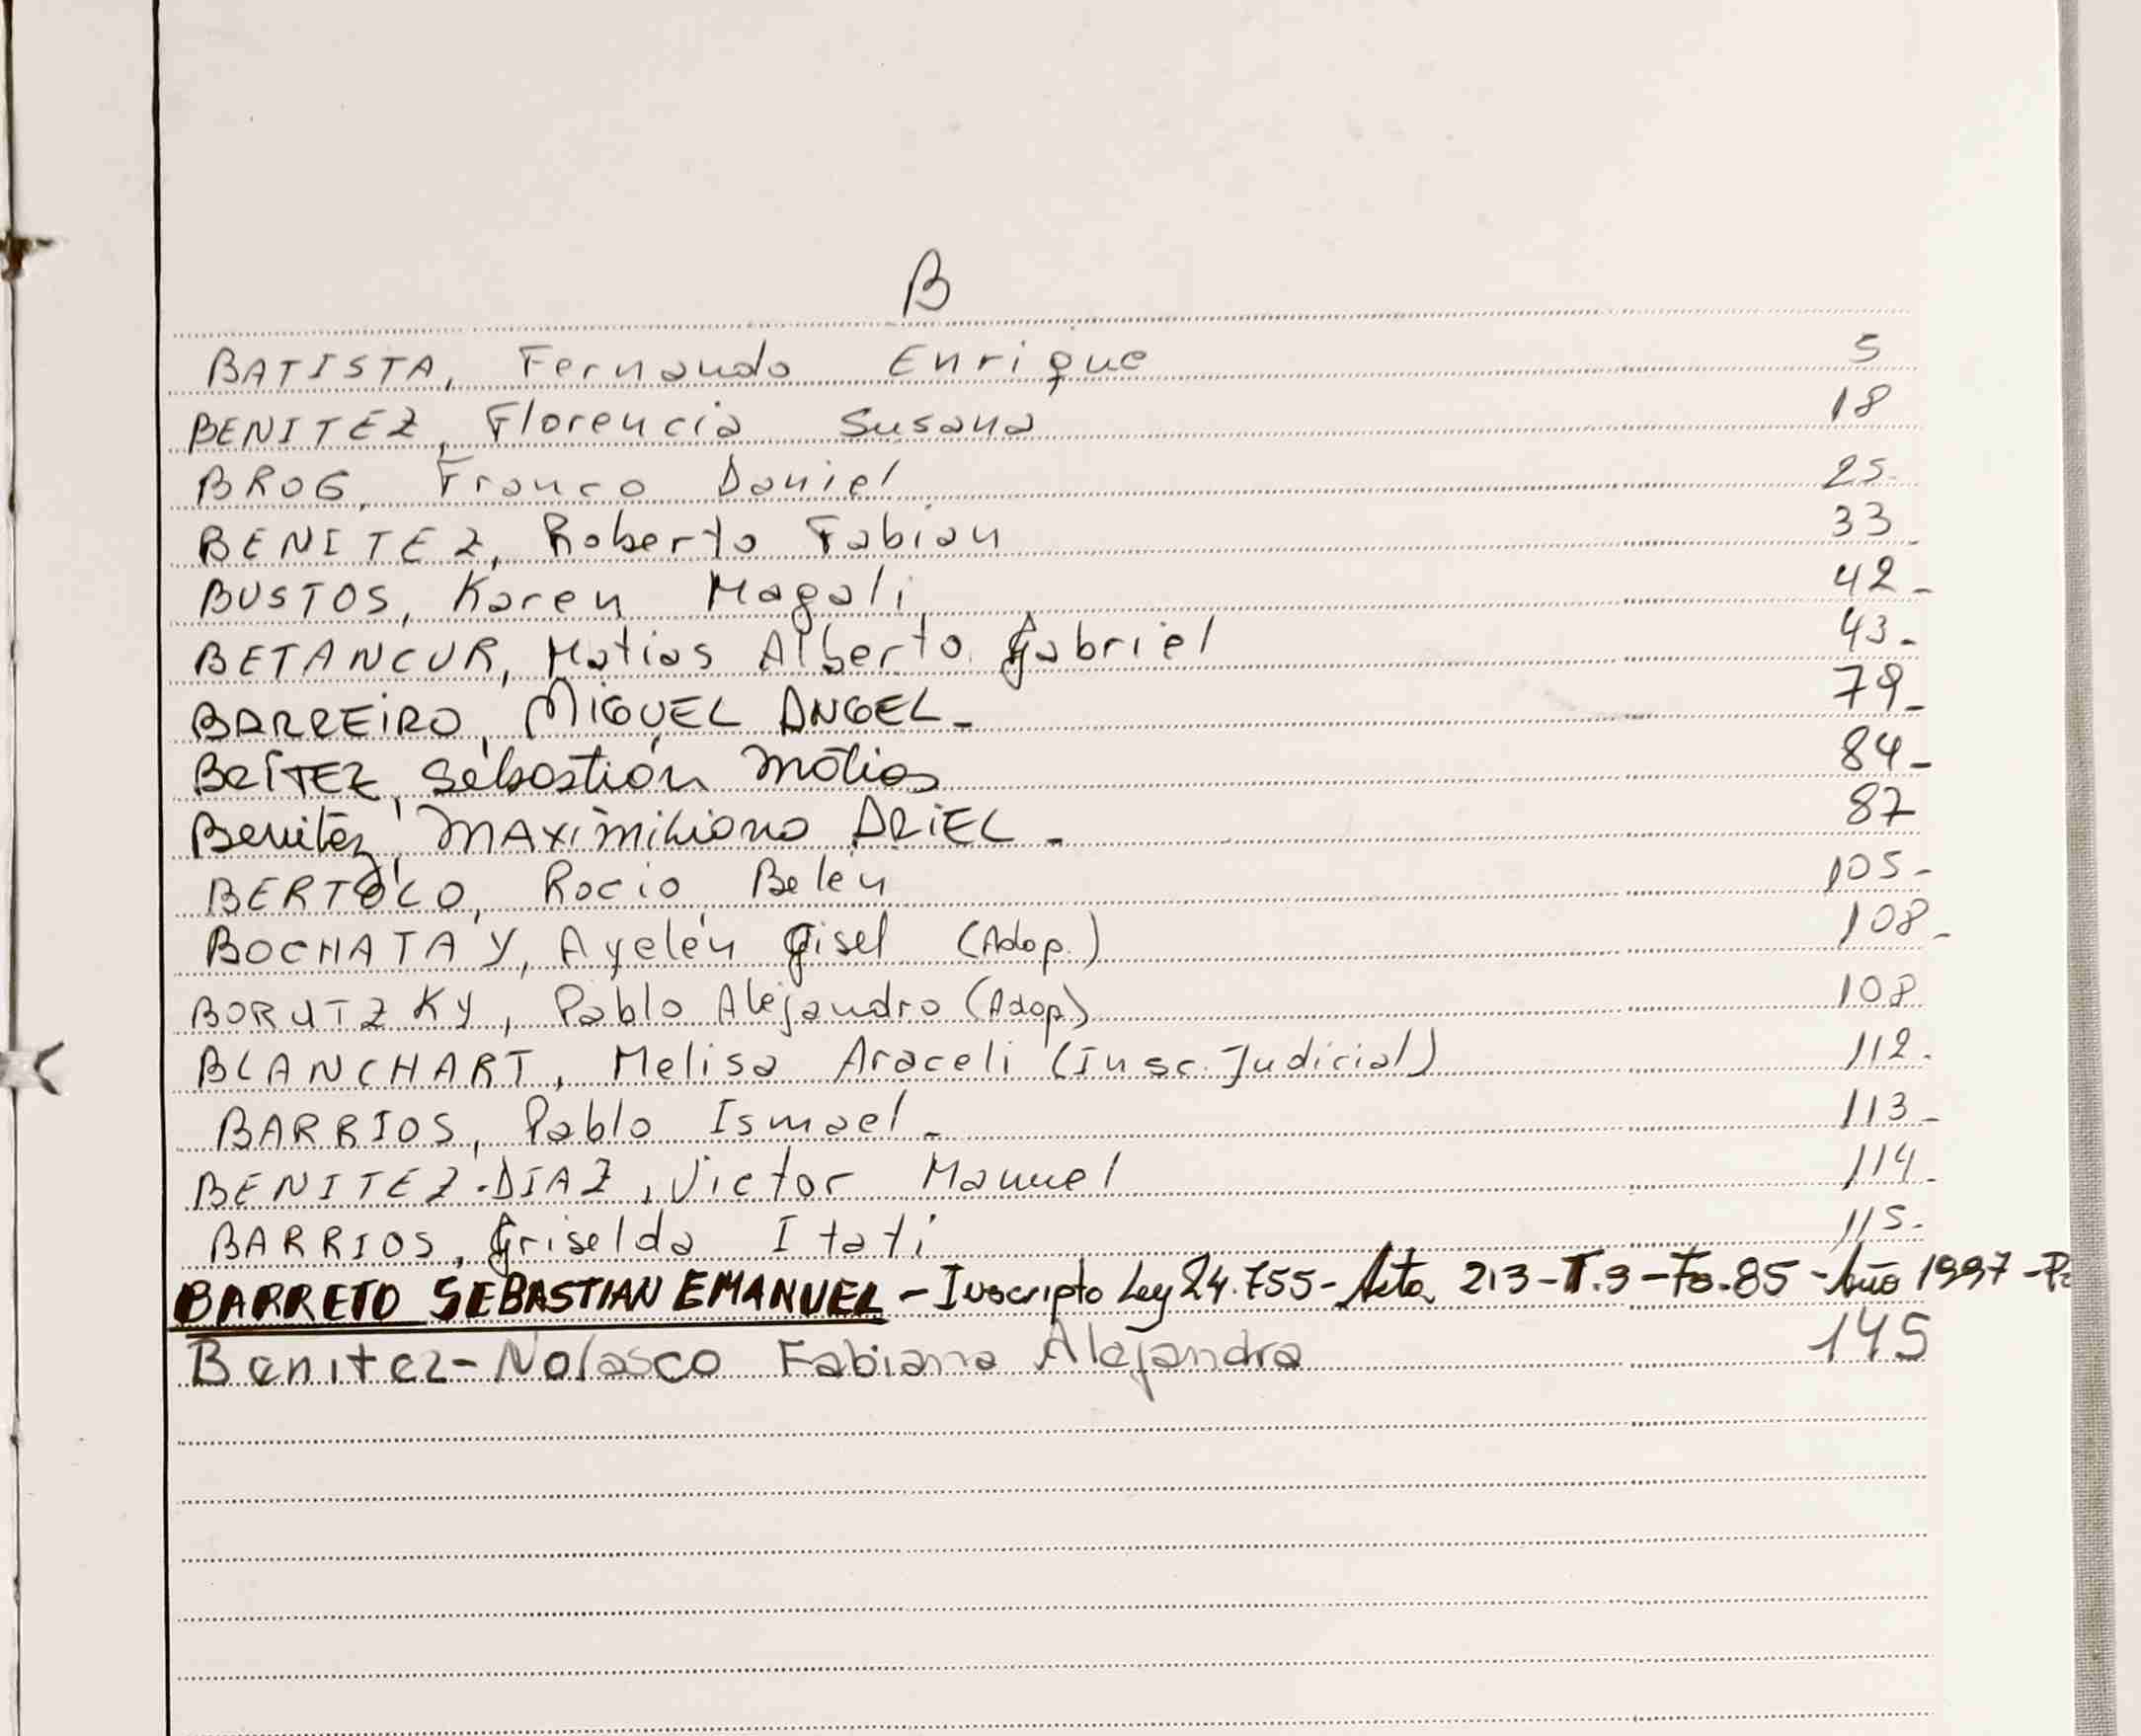 B
BATISTA, Fernando Enrique 5
BENITEZ, Florencia Susana 18
BROG, Franco Daniel 25.
BENITEZ, Roberto Fabian 33_
BUSTOS, Karen Magali 42_
BETANCUR, Matias Alberto Gabriel 43_
BARREIRO, MIGUEL ANGEL_ 79_
BEÍTEZ, Sebastián Matias 84_
Benitez, MAXIMILIANO ARIEL_ 87
BERTOLO, Rocio Belén 105_
BOCHATAY, Ayelén Gisel (Adop.) 108_
BORUTZKY, Pablo Alejandro (Adop) 108
BLANCHART, Melisa Araceli (Insc. Judicial) 112.
BARRIOS, Pablo Ismael_ 113_
BENITEZ-DIAZ, Victor Manuel 114_
BARRIOS, Griselda Itati 115.
BARRETO SEBASTIAN EMANUEL - Inscripto Ley 24.755 - Acta 213 - T.3 - Fo. 85 - Año 1997 -
Benitez-Nolasco Fabiana Alejandra 145